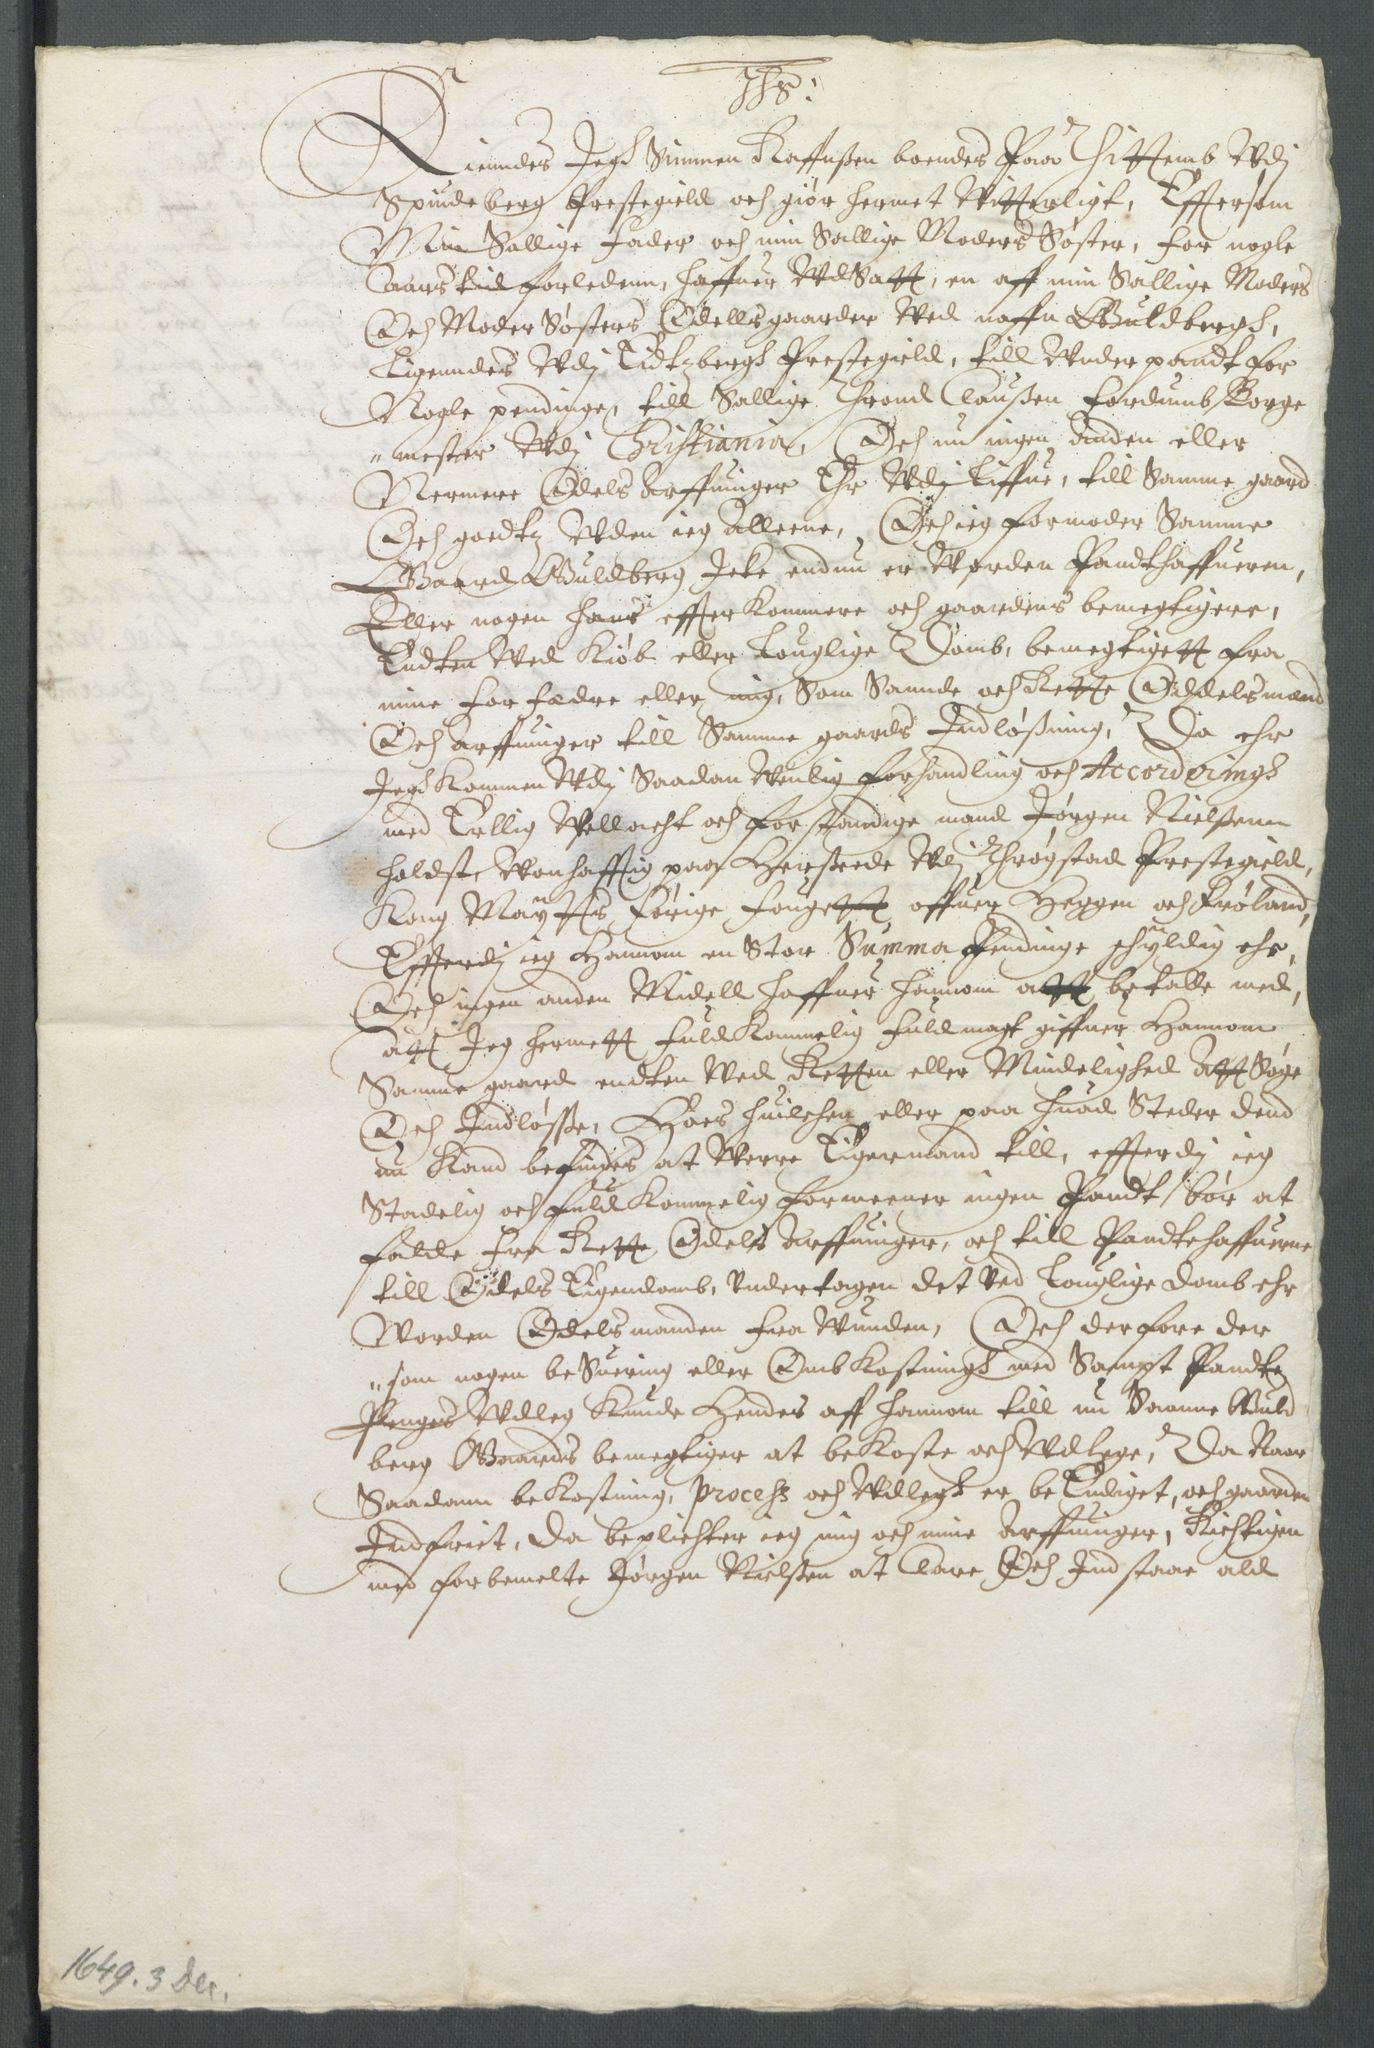 Jhs:
Kiendes Jegh Simmen Raffnßen boendes Paa Thittemb Vdj
Spindeberg Prestegield och giør hermet Vitterligt, Effersom
Min Sallige fader och min Sallige Moders Søster, for nogle
Aars tid forledenn, haffuer VdSatt, en aff min Sallige Moders
Och Moder Søsters Odellsgaarder Ved naffn Guldbergh,
Ligenndes Vdj Eidtzbergh Prestegield, till Vnderpandt for
Nogle pendinge, till Sallige Thrond Claußen fordumb Borge
"mester Vdj Christiania, Och nu ingen anden eller
Nermere Odels Arffuinger Ehr Vdj Liffue, till Samme gaard
Och goedtz Vden ieg Alleene, Och ieg formoder Samme
Gaard Guldberg Icke endnu er Vorden Pandthaffueren,
Eller nogen hans effterKommere och gaardens bemegtigere,
Endten Ved Kiøb eller Louglige Domb, bemegtigett fra
mine forfædre eller mig, Som Sannde och Rette Oddelsmand
Och arffuinger till Samme gaards Indløßning, Da ehr
Jegh Kommen Vdj Saadan Venlig forhandling och Accorderingh
med Erllig Vellacht och forstandige mand Jørgen Nielßenn
holdst, Vonhafftig paa Herßrede Vdj Thrøgstad Prestegield,
Kong Maÿtts forige fougett offuer Heggen och Frøland,
Effterdj ieg Hannom en Stor Summa Pendinge schÿldig ehr,
Och ingen anden Midell haffuer hannom att betalle med,
att Jeg hermett fuldKommelig fuldmagt giffuer Hannom
Samme gaard endten Ved Retten eller Mindelighed att Søge
Och Indløsse, Hoes huilchen eller paa huad Steder dend
nu Kand befindes at Verre Eigermand till, effterdj ieg
Stadelig och fuldKommelig formeener ingen Pandt bør at
falde fra Rette Odels Arffuinger, och till Pandtehaffuerne
till Odels Eigendomb, vndertagen det ved Louglige domb ehr
Vorden Odelsmanden fra Vunden, Och derfore der
"som nogen beSuering eller OmbKostningh med Sampt Pandte
Penges Vdleg Kunde Hendes aff hannom till nu Samme Guld
berg Gaards bemegtiger at beKoste och Vdlege, Da Naar
Saadann beKostning, process och Vdlegh er beEndiget, och gaarden
Indfriet, Da beplichter ieg mig och mine Arffuinger, Richtigen
med forbemelte Jørgen Nielßen at Clare Och Indstaae ald
1649. 3 Dec.